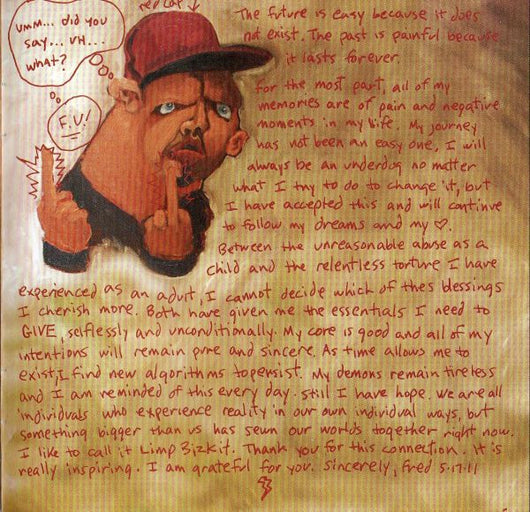 red cap ↓
umm... did you
say... uh...
what?
F.U!
The future is easy because it does
not exist. The past is painful because
it lasts forever.
For the most part, all of my
memories are of pain and negative
moments in my life. My journey
has not been an easy one, I will
always be an underdog no matter
what I try to do to change it, but
I have accepted this and will continue
to follow my dreams and my ♡.
Between the unreasonable abuse as a
child and the relentless torture I have
experienced as an adult, I cannot decide which of thes blessings
I cherish more. Both have given me the essentials I need to
GIVE, selflessly and unconditionally. My core is good and all of my
intentions will remain pure and sincere. As time allows me to
exist, I find new algorithms to persist. My demons remain tireless
and I am reminded of this every day. still I have hope. we are all
individuals who experience reality in our own individual ways, but
something bigger than us has sewn our worlds together right now.
I like to call it Limp Bizkit. Thank you for this connection. It is
really inspiring. I am grateful for you. sincerely, Fred 5.17.11